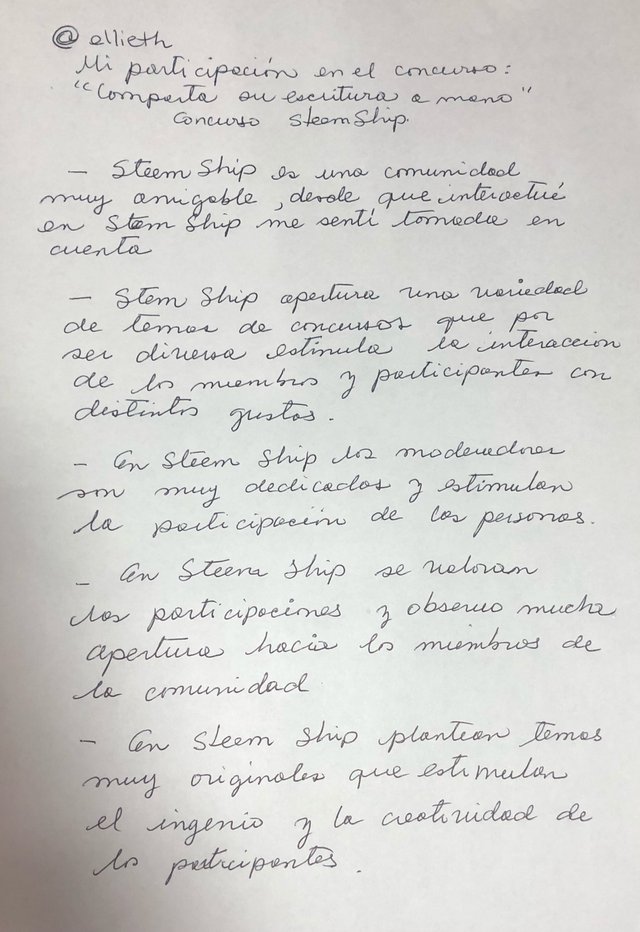 @ ellieth
Mi participación en el concurso:
"Comparta su escritura a mano"
Concurso SteemShip.
- Steem Ship es una comunidad
muy amigable, desde que interactué
en Stem Ship me sentí tomada en
cuenta
- Stem Ship apertura una variedad
de temas de concursos que por
ser diversa estimula la interacción
de los miembros y participantes con
distintos gustos.
- En Steem Ship los moderedores
son muy dedicados y estimulan
la participación de las personas.
- En Steem Ship se valoran
las participaciones y observo mucha
apertura hacia los miembros de
la comunidad
- En Steem Ship plantean temas
muy originales que estimulan
el ingenio y la creatividad de
los participantes.